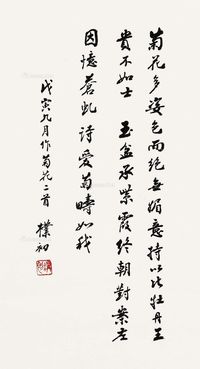 菊花多姿色而绝无媚意持以比牡丹王
贵不如士 玉盆承紫霞终朝对案左
因忆苍虬诗爱菊畴如我
戊寅九月作菊花二首
朴初